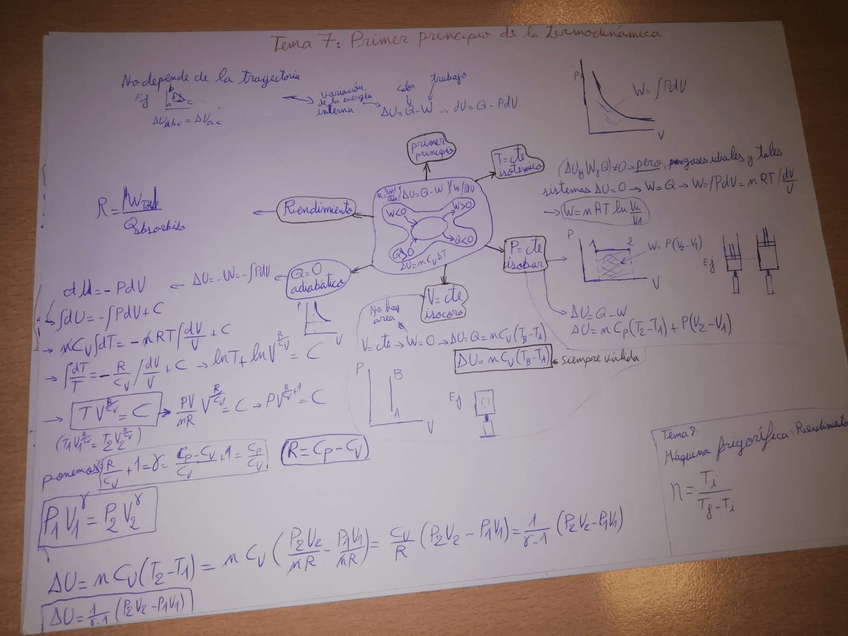 Tema 7: Primer principio de la termodinámica
No depende de la trayectoria
Ej
ΔUabc = ΔUac
variación de la energía interna
calor
trabajo
ΔU = Q - W → dU = Q - PdV
P
W = ∫PdV
V
primer principio
T = cte isotérmico
(ΔU y W y Q) ≠ 0 → pero, para gases ideales y tales
sistemas ΔU = 0 → W = Q → W = ∫PdV = nRT ∫dV/V
→ W = nRT ln V2/V1
R = |WTotal| / Qabsorbido
Rendimiento
ΔU = Q - W
W<0
W>0
Q>0
Q<0
ΔU = nCvΔT
P = cte isobar
P
1 2
W = P(V2 - V1)
V
Ej
→ ΔU = Q - W
ΔU = nCp(T2 - T1) + P(V2 - V1)
Q = 0 adiabático
ΔU = -W = -∫PdV
dU = -PdV
↳ ∫dU = -∫PdV + C
→ nCv∫dT = -nRT∫dV/V + C
→ ∫dT/T = -R/Cv ∫dV/V + C → lnT + lnV^(R/Cv) = C
→ TV^(R/Cv) = C → PV/nR V^(R/Cv) = C → PV^(R/Cv + 1) = C
(T1V1^(R/Cv) = T2V2^(R/Cv))
ponemos R/Cv + 1 = γ = Cp - Cv/Cv + 1 = Cp/Cv
R = Cp - Cv
P1V1^γ = P2V2^γ
V
V = cte isocoro
No hay área
V = cte → W = 0 → ΔU = Q = nCv(TB - TA)
ΔU = nCv(TB - TA) ← siempre válida
P
B
A
V
Ej
Tema 8
Máquina frigorífica: Rendimiento
η = Ti / Tf - Ti
ΔU = nCv(T2 - T1) = nCv(P2V2/nR - P1V1/nR) = Cv/R (P2V2 - P1V1) = 1/γ-1 (P2V2 - P1V1)
ΔU = 1/γ-1 (P2V2 - P1V1)